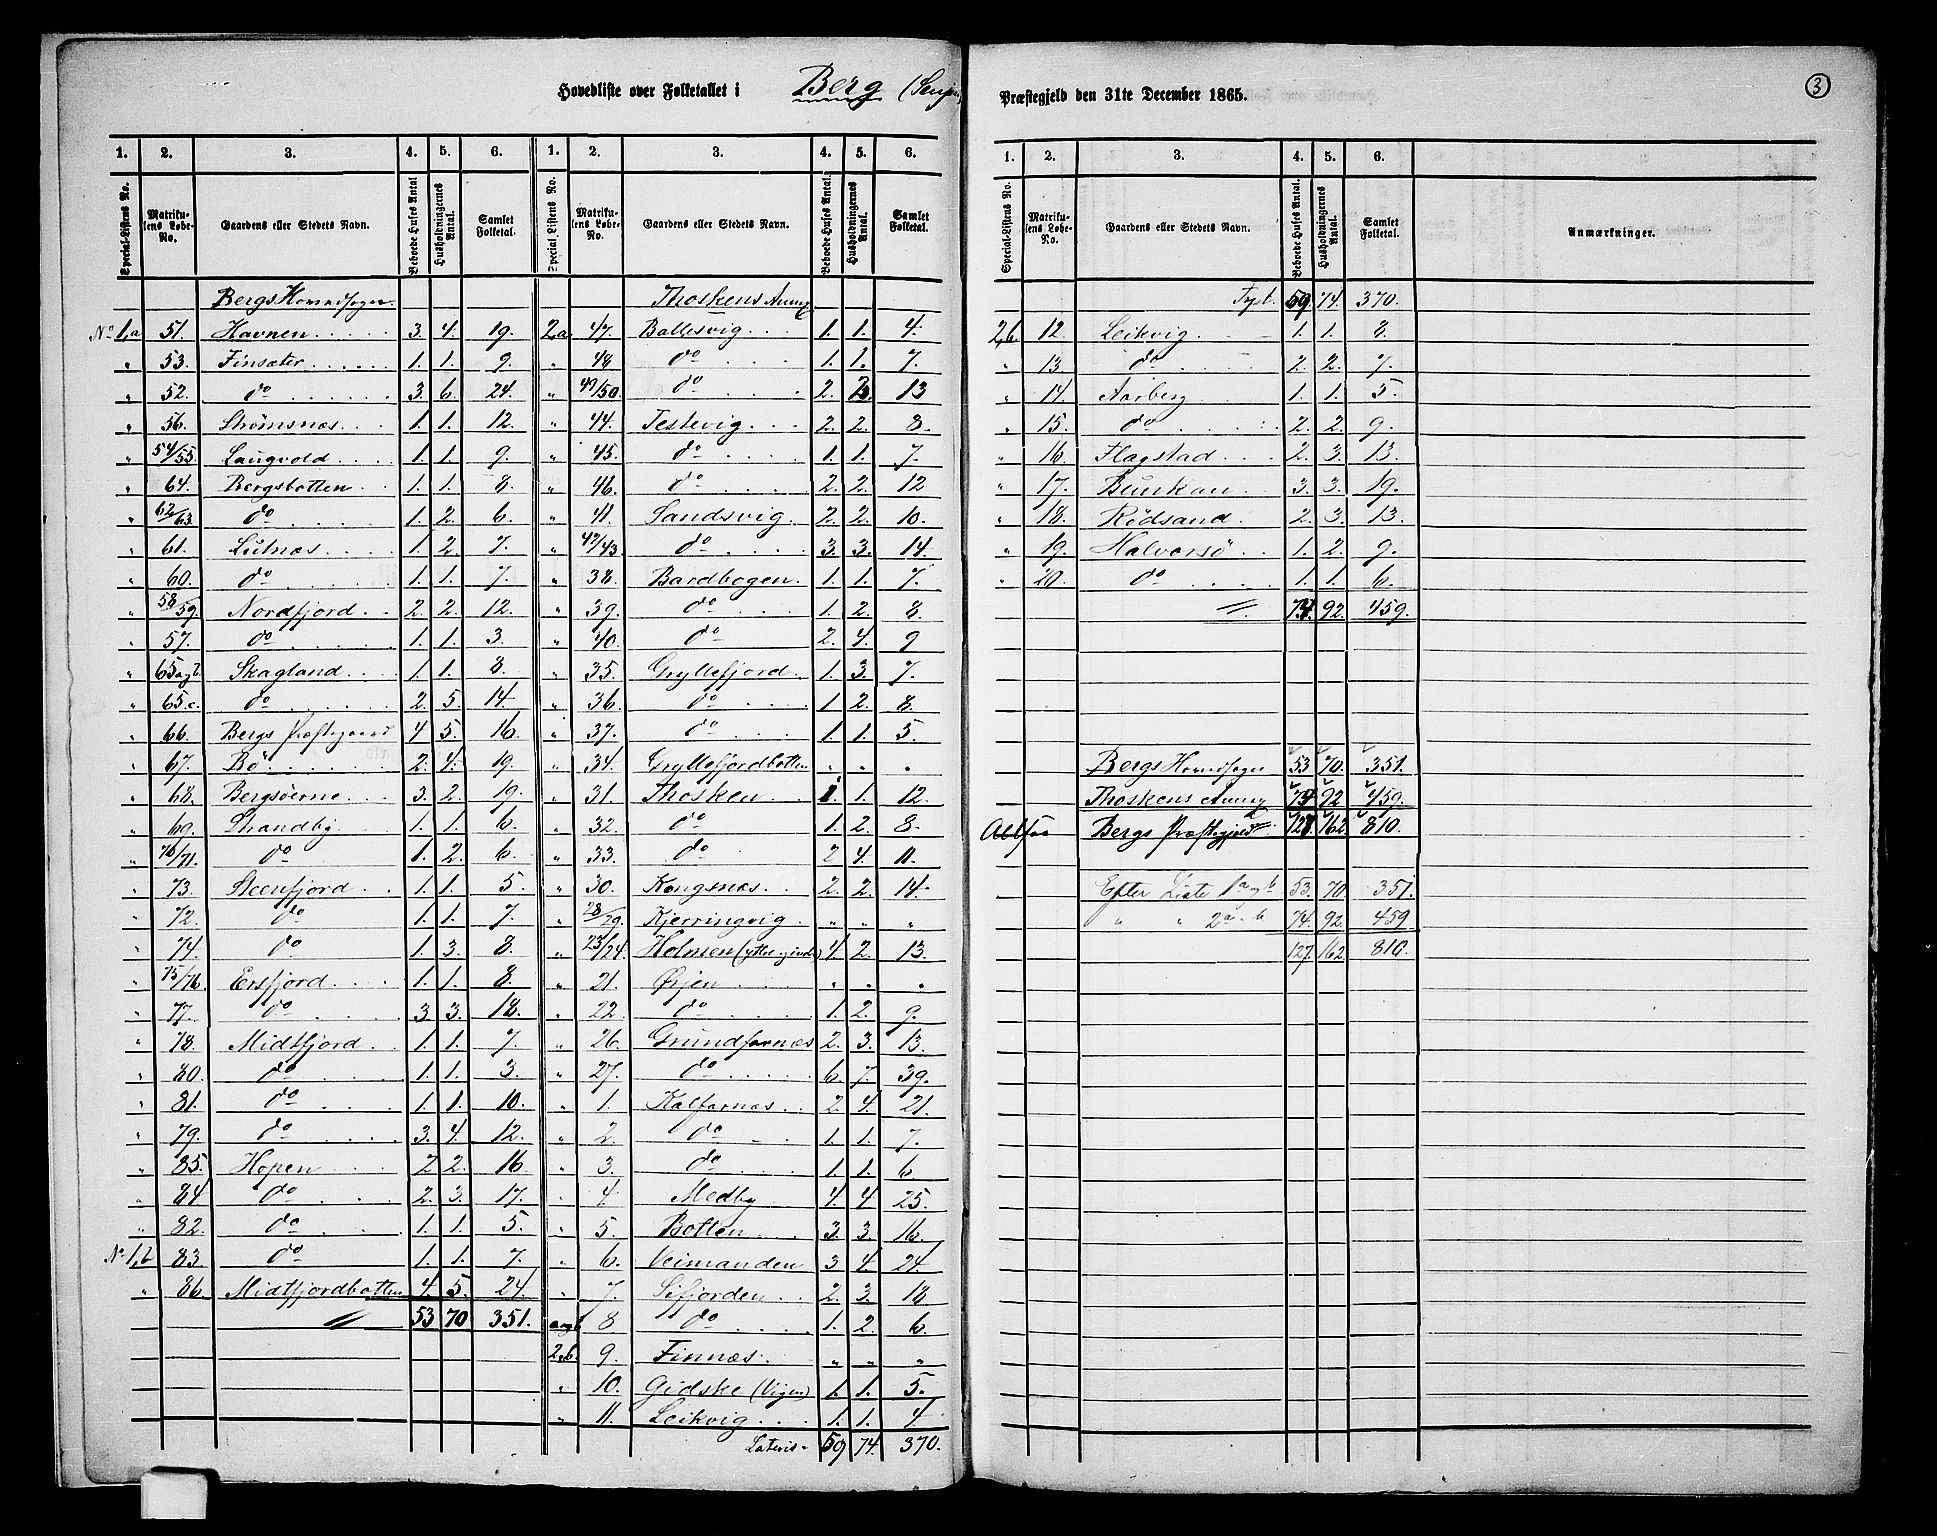 Hovedliste over Folketallet i Berg (Senjen) Præstegjeld den 31te December 1865.
3
1. 2. 3. 4. 5. 6.
Special-Listens No. Matrikulens Løbe-No. Gaardens eller Stedets Navn. Beboede Huses Antal Husholdningernes Antal. Samlet Folketal.
Bergs Hovedsogn
No 1,a 51. Havnen 3. 4. 19.
„ 53. Finsæter 1. 1. 9.
„ 52. do 3. 6. 24.
„ 56. Strømsnæs 1. 1. 12.
„ 54/55. Laugvold 1. 1. 9.
„ 64. Bergsbotten 1. 1. 8.
„ 62/63. do 1. 2. 6.
„ 61. Lutnæs 1. 2. 7.
„ 60. do 1. 1. 7.
„ 58/59. Nordfjord 2. 2. 12.
„ 57. do 1. 1. 3.
„ 65 a og b. Skagland 1. 1. 8.
„ 65.c. do 2. 5. 14.
„ 66. Bergs Præstegaard 4 5. 16.
„ 67. Bö 2. 4. 19.
„ 68. Bergsöerne 3. 2. 19.
„ 69. Strandby 1. 1. 6.
„ 70/71. do 1. 2. 6.
„ 73. Steenfjord 1. 1. 5.
„ 72. do 1. 1. 7.
„ 74. do 1. 3. 8.
„ 75/76. Ersfjord 1. 1. 8.
„ 77. do 3 3. 18.
„ 78. Midtfjord 1. 1. 7.
„ 80. do 1. 1. 3.
„ 81. do 1. 1. 10.
„ 79. do 3. 4. 12.
„ 85. Hopen 2 2. 16
„ 84 do 2. 3. 17.
„ 82. do 1. 1. 5.
No 1,b 83. do 1. 1. 7.
„ 86. Midtfjordbotten 4. 5. 24.
53 70 351.
1. 2. 3. 4. 5. 6.
Special Listens No. Matrikulens Løbe-No. Gaardens eller Stedets Navn. Beboede Huses Antal. Husholdningernes Antal. Samlet Folketal.
Thoskens Annex
2,a 47. Ballesvig 1. 1. 4.
„ 48 do 1. 1. 7.
„ 49/50. do 2. 3. 13
„ 44. Testevig 2. 2. 8.
„ 45. do 1. 1. 7.
„ 46. do 2. 2. 12
„ 41. Sandsvig 2. 2. 10.
„ 42/43. do 3. 3. 14.
„ 38. Bardbogen 1. 1. 7.
„ 39. do 1. 2. 8
„ 40. do 2. 4. 9
„ 35. Gryllefjord 1. 3. 7.
„ 36. do 1 2. 8.
„ 37. do 1. 1. 5.
„ 34. Gryllefjordbotten „ „ „
„ 31. Thosken 1. 1. 12.
„ 32. do 1. 2. 8.
„ 33. do 2 4. 11.
„ 30. Kongsnæs 2. 2. 14.
„ 28/29. Kjerringvig „ „ „
„ 23/24. Holmen (yttre og indre) 4 2. 13.
„ 21. Örjen „ „ „
„ 22 do 1. 2. 9.
„ 26. Grundfarnæs 2. 3. 13.
„ 27. do 6. 7. 39.
„ 1. Kalfarnæs 2. 4. 21.
„ 2. do 1. 1. 7.
„ 3. do 1. 1. 6.
„ 4. Medby 4. 4 25.
„ 5. Botten 3. 3. 16.
„ 6. Veimanden 3 4. 24.
„ 7. Sifjorden 2. 3. 18
a og b 8. do 1. 2. 6.
2,b. 9. Finnæs „ „ „
„ 10. Gidske (Vigen) 1. 1. 5.
„ 11. Leikvig 1. 1. 4.
Lateris 59 74. 370.
1. 2. 3. 4. 5. 6.
Special-Listens No. Matrikulens Løbe-No. Gaardens eller Stedets Navn. Beboede Huses Antal. Husholdningernes Antal. Samlet Folketal. Anmærkninger.
59. 74. 370.
2,b. 12. Leikvig 1. 1. 8.
„ 13. do 2. 2. 7.
„ 14. Aarberg 1. 1. 5.
„ 15. do 2. 2. 9.
„ 16. Flagstad 2. 3. 13.
„ 17. Bunkan 3. 3. 19.
„ 18. Rödsand 2. 3. 13.
„ 19. Halvarsö 1. 2. 9.
„ 20. do 1. 1. 6.
74. 92. 459.
Bergs Hovedsogn 53 70. 351.
Thoskens Annex 74 92 459.
Altsaa Bergs Præstegjeld 127 162. 810.
Efter Liste 1 a og b 53. 70. 351.
„ „ 2 a - b 74. 92. 459
127. 162. 810.